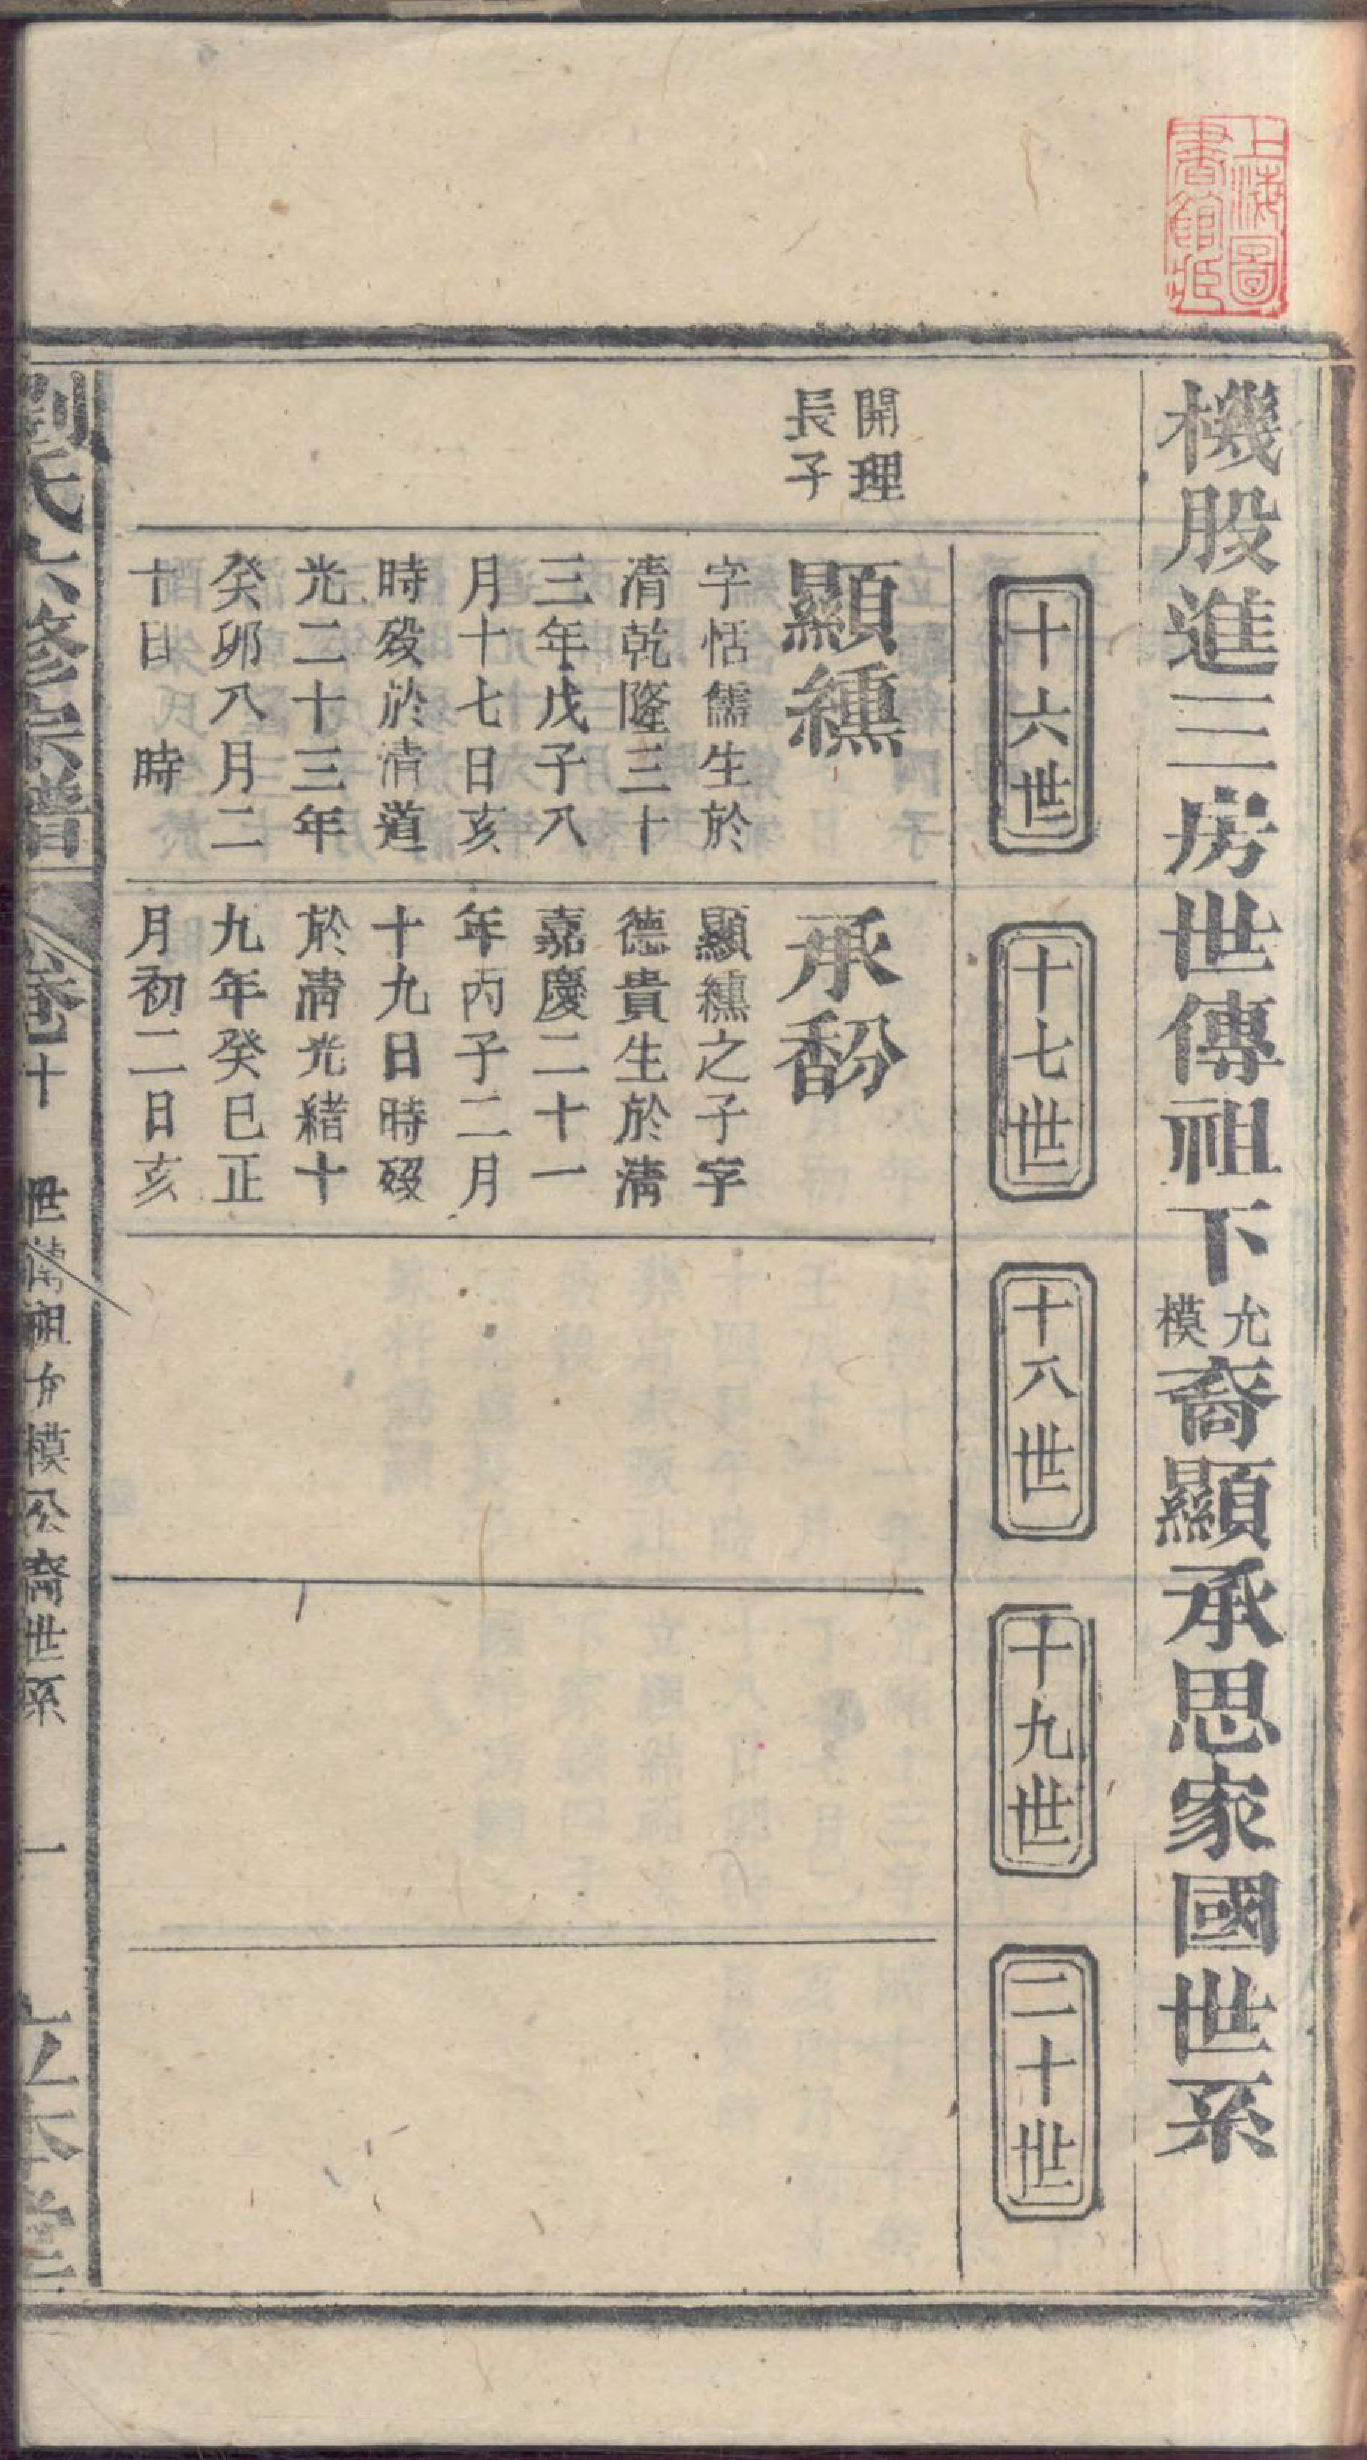 上海圖
書館藏
機股進三房世傳祖下允模裔顯承思家國世系
十六世
十七世
十八世
十九世
二十世
開理
長子
顯纁
字恬儒生於
清乾隆三十
三年戊子八
月十七日亥
時殁於清道
光二十三年
癸卯八月二
十日 時
承馚
顯纁之子字
德貴生於清
嘉慶二十一
年丙子二月
十九日時殁
於清光緒十
九年癸巳正
月初二日亥
劉氏六修宗譜
卷十
世傳祖允模公裔世系
一
立本堂